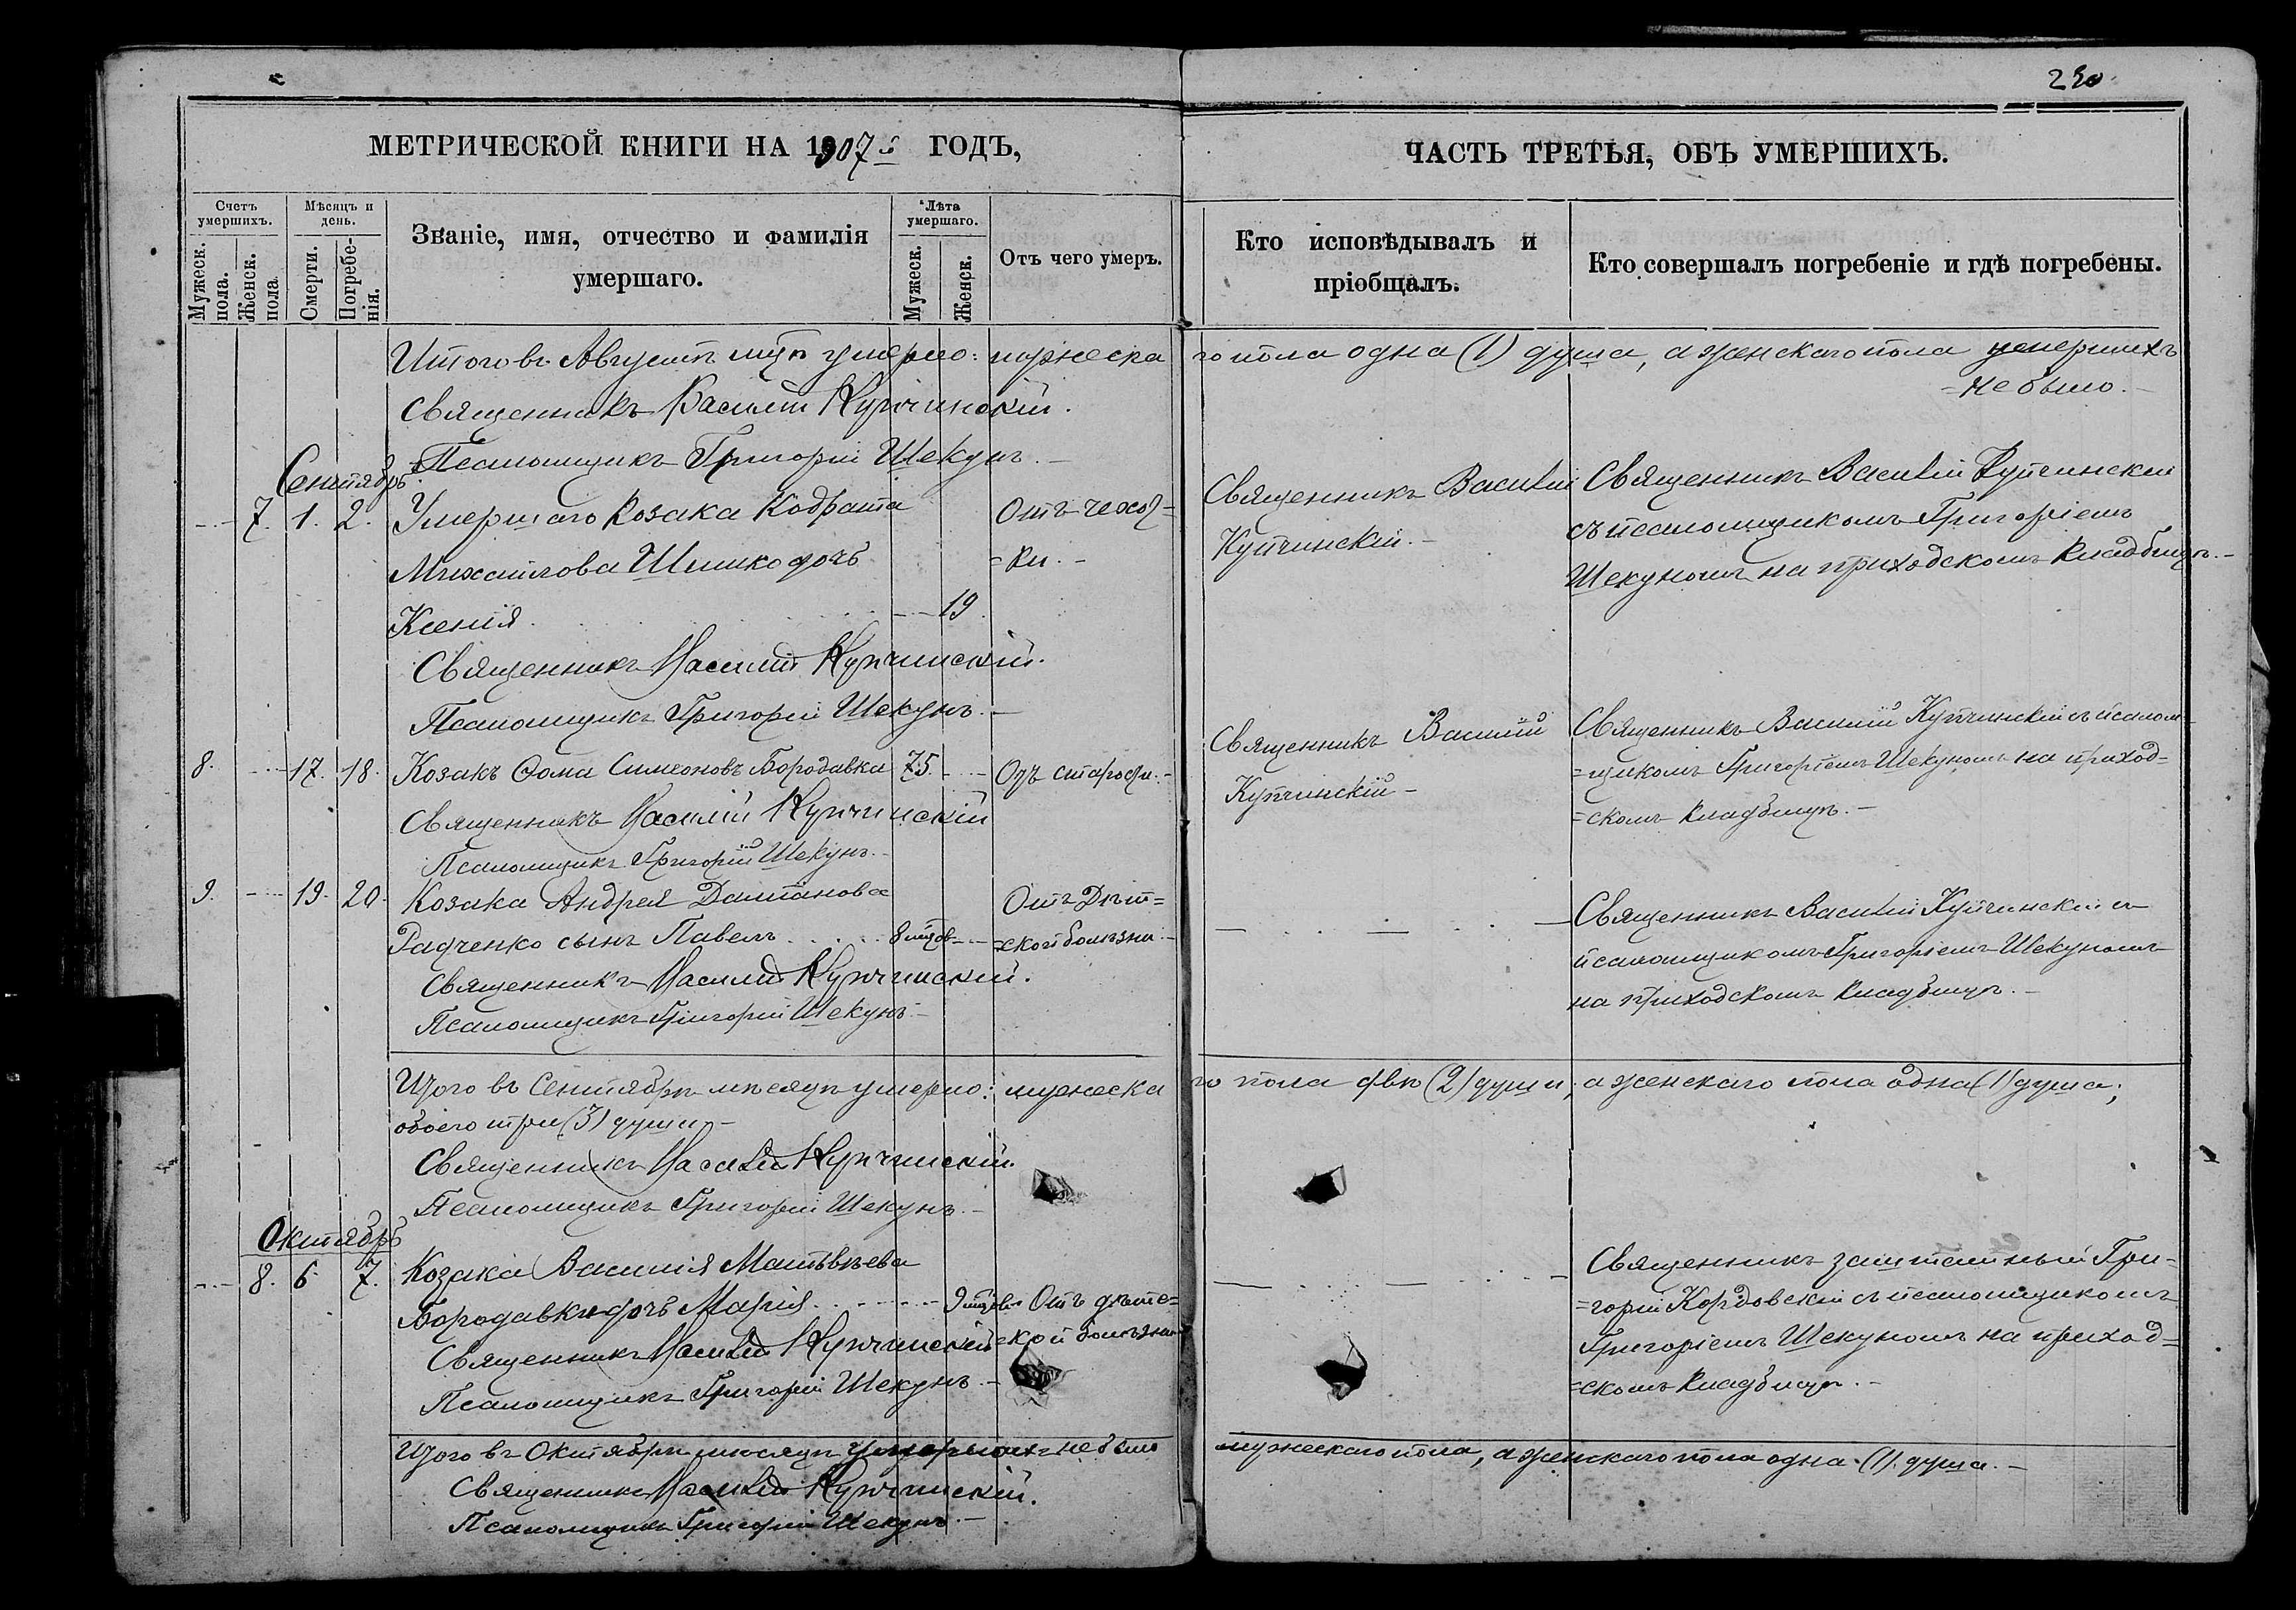 230
МЕТРИЧЕСКОЙ КНИГИ НА 1907й ГОДЪ,
Счетъ умершихъ.
Мужеск. пола.
Женск. пола
Мѣсяцъ и день.
Смерти.
Погребенія.
Званіе, имя, отчество и фамилія
умершаго.
Лѣта умершаго.
Мужеск.
Женск.
Отъ чего умеръ.
ЧАСТЬ ТРЕТЬЯ, ОБЪ УМЕРШИХЪ.
Кто исповѣдывалъ и
пріобщалъ.
Кто совершалъ погребеніе и гдѣ погребены.
Итого въ Августѣ м-цѣ умерло: мужеска
го пола одна (1) душа, а женскаго пола умершихъ
не было. -
Священникъ Василій Купчинскій.
Псаломщикъ Григорій Шекунъ. -
Сентябрь
7. 1. 2. Умершаго Козака Кодрата
Михайлова Шишко дочь
Ксенія. 19
Отъ чехот=
=ки. -
Священникъ Василій
Купчинскій. -
Священникъ Василій Купчинскій
съ псаломщикомъ Григоріемъ
Шекуномъ на приходскомъ кладбищѣ. -
Священникъ Василій Купчинскій.
Псаломщикъ Григорій Шекунъ. -
8. 17. 18. Козакъ Ѳома Симеоновъ Бородавка 75. Одъ старости. -
Священникъ Василій
Купчинскій -
Священникъ Василій Купчинскій съ псалом-
=щикомъ Григоріемъ Шекуномъ на приход=
=скомъ кладбищѣ. -
Священникъ Василій Купчинскій
Псаломщикъ Григорій Шекунъ. -
9. 19. 20. Козака Андрея Даміанова
Радченко сынъ Павелъ 8 м-цов
Отъ Дѣт=
=ской болѣзни -
Священникъ Василій Купчинскій съ
псаломщикомъ Григоріемъ Шекуномъ
на приходскомъ кладбищѣ. -
Священникъ Василій Купчинскій.
Псаломщикъ Григорій Шекунъ -
Итого въ Сентябрѣ мѣсяцѣ умерло: мужеска
го пола двѣ (2) души, а женскаго пола одна (1) душа;
обоего три (3) души -
Священникъ Василій Купчинскій.
Псаломщикъ Григорій Шекунъ. -
Октябрь
8. 6 7. Козака Василія Матвѣева
Бородавки дочь Марія 9 м-цов
Отъ дѣтс=
=ской болѣзни
Священникъ заштатный Гри=
=горій Кордовскій съ псаломщикомъ
Григоріемъ Шекуномъ на приход=
=скомъ кладбищѣ. -
Священникъ Василій Купчинскій
Псаломщикъ Григорій Шекунъ. -
Итого въ Октябрѣ мѣсяцѣ умершихъ не было
мужескаго пола, а женскаго пола одна (1) душа. -
Священникъ Василій Купчинскій.
Псаломщикъ Григорій Шекунъ. -